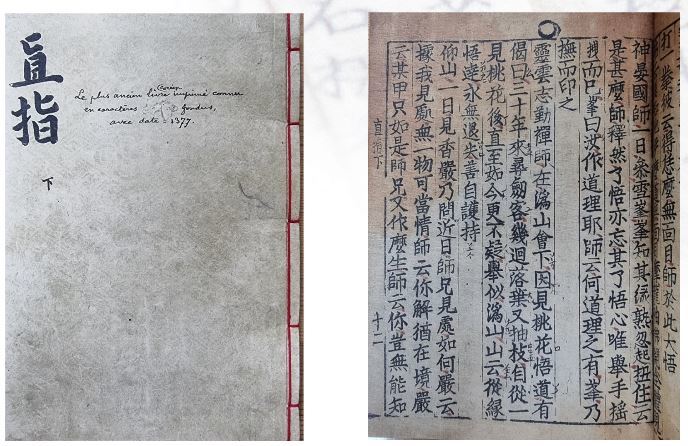 直指
下
Coréen
Le plus ancien livre imprimé connu
en caractères fondus,
avec date = 1377.
云得恁麼無面目師於此大悟
神晏國師一日叅雪峯峯知其緣熟忽起扭住云
是甚麼師釋然了悟亦忘其了悟心唯舉手搖
拽而已峯曰汝作道理耶師云何道理之有峯乃
撫而印之
靈雲志勤禪師在潙山會下因見桃花悟道有
偈曰三十年來尋劒客幾迴落葉又抽枝自從一
見桃花後直至如今更不疑舉似潙山山云從緣
悟達永無退失善自護持
仰山一日見香嚴乃問近日師兄見處如何嚴云
據我見處無一物可當情師云你解猶在境嚴
云某甲只如是師兄又作麼生師云你豈無能知
直指下 十二